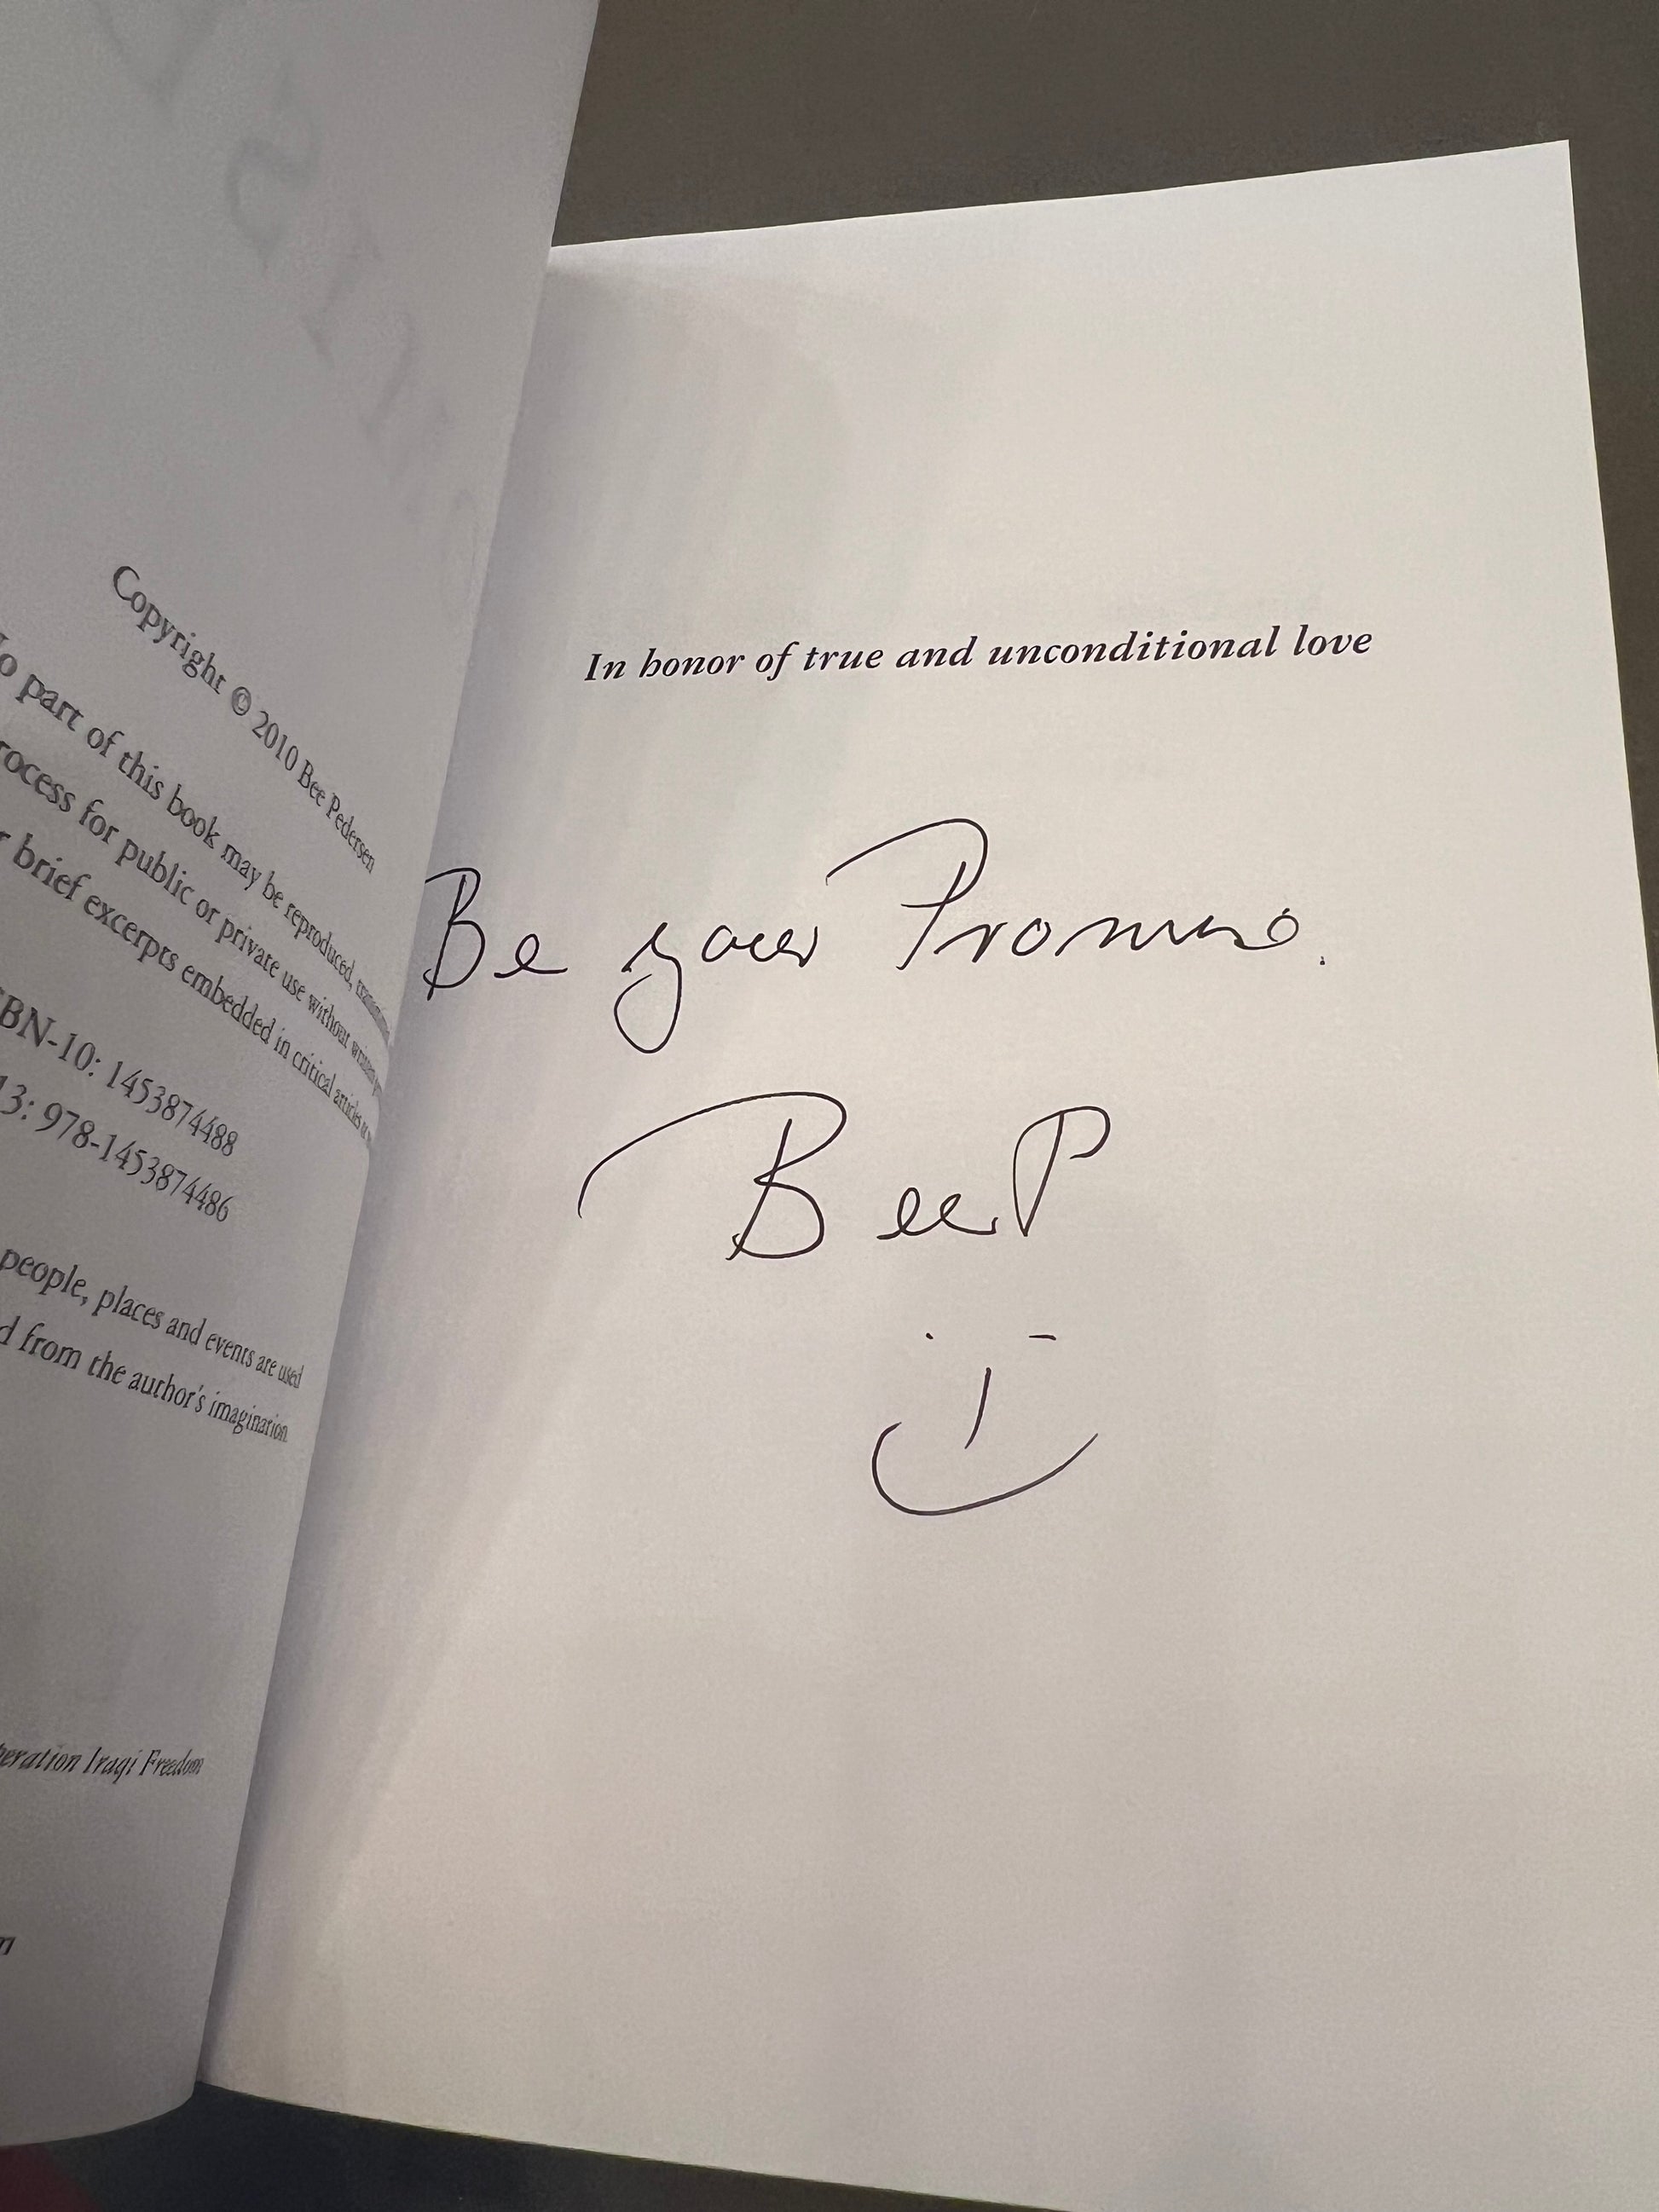 Copyright © 2010 Bee Pedersen
No part of this book may be reproduced,
rocess for public or private use without written
r brief excerpts embedded in critical articles or
BN-10: 1453874488
13: 978-1453874486
people, places and events are used
d from the author's imagination.
eration Iraqi Freedom
In honor of true and unconditional love
Be your Promise.
Bee P